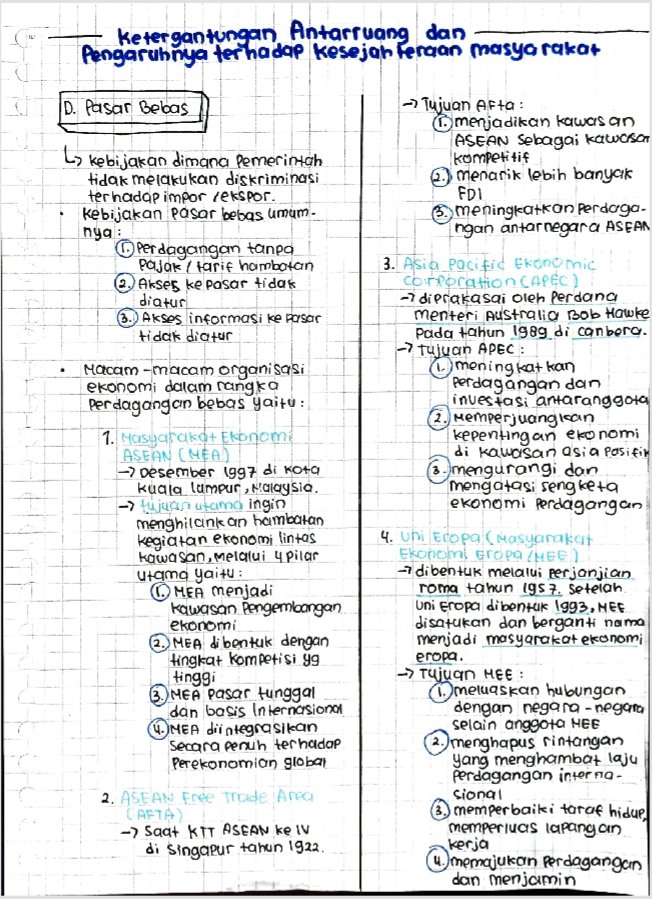 Ketergantungan Antarruang dan
Pengaruhnya terhadap Kesejahteraan masyarakat
D. Pasar Bebas
↳ Kebijakan dimana Pemerintah
tidak melakukan diskriminasi
terhadap impor /ekspor.
• Kebijakan Pasar bebas umum-
nya :
1. Perdagangan tanpa
Pajak / tarif hambatan
2. Akses ke pasar tidak
diatur
3. Akses informasi ke pasar
tidak diatur
• Macam-macam organisasi
ekonomi dalam rangka
Perdagangan bebas yaitu :
1. Masyarakat Ekonomi
ASEAN (MEA)
→ Desember 1997 di Kota
Kuala Lumpur, Malaysia.
→ tujuan utama ingin
menghilankan hambatan
kegiatan ekonomi lintas
kawasan, melalui 4 pilar
utama yaitu :
1. MEA menjadi
kawasan Pengembangan
ekonomi
2. MEA dibentuk dengan
tingkat kompetisi yg
tinggi
3. MEA pasar tunggal
dan basis Internasional
4. MEA diintegrasikan
secara penuh terhadap
Perekonomian global
2. ASEAN Free Trade Area
(AFTA)
→ Saat KTT ASEAN ke IV
di Singapur tahun 1922.
→ Tujuan AFta :
1. menjadikan kawasan
ASEAN sebagai kawasan
kompetitif
2. menarik lebih banyak
FDI
3. meningkatkan Perdaga-
ngan antarnegara ASEAN
3. Asia Pacific Ekonomic
Corporation (APEC)
→ diprakasai oleh Perdana
menteri Australia Bob Hawke
Pada tahun 1989 di canbera.
→ Tujuan APEC :
1. meningkatkan
Perdagangan dan
investasi antaranggota
2. Memperjuangkan
kepentingan ekonomi
di kawasan asia Pasifik
3. mengurangi dan
mengatasi sengketa
ekonomi Perdagangan
4. Uni Eropa (Masyarakat
Ekonomi Eropa/MEE)
→ dibentuk melalui perjanjian
roma tahun 1957. Setelah
Uni Eropa dibentuk 1993, MEE
disatukan dan berganti nama
menjadi masyarakat ekonomi
eropa.
→ Tujuan MEE :
1. meluaskan hubungan
dengan negara-negara
selain anggota MEE
2. menghapus rintangan
yang menghambat laju
Perdagangan interna-
sional
3. memperbaiki taraf hidup,
memperluas lapangan
kerja
4. memajukan Perdagangan
dan menjamin